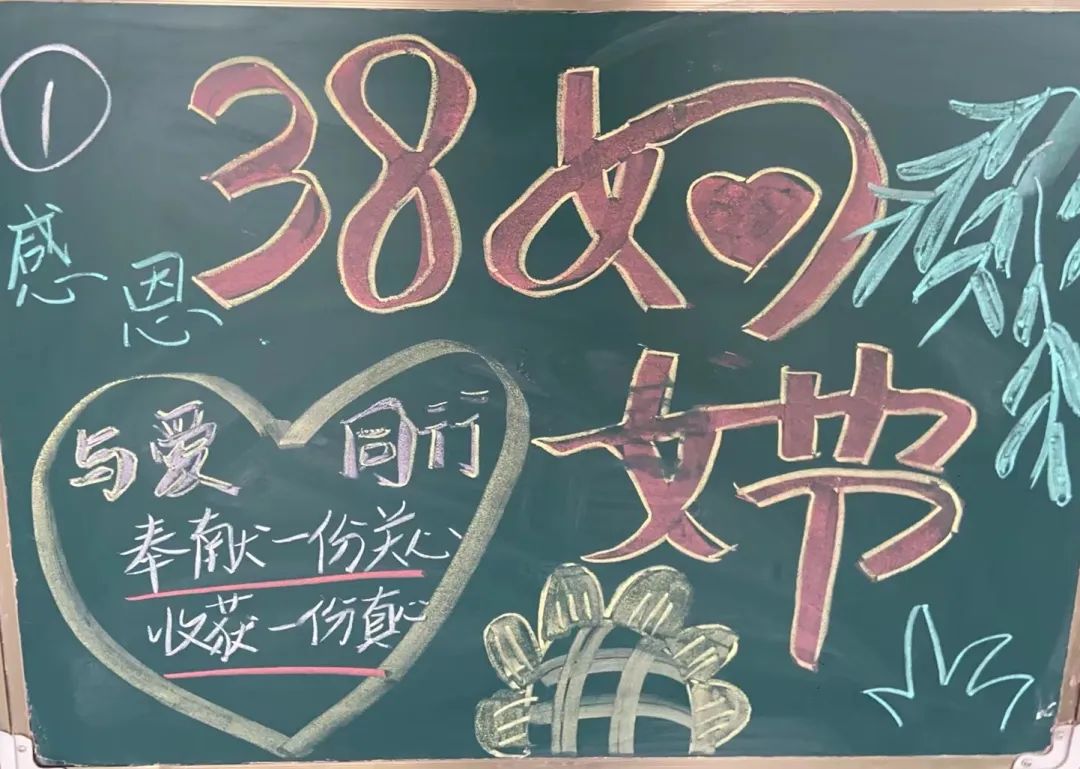 ①
38妇
女节
感恩
与爱同行
奉献一份关心
收获一份真心